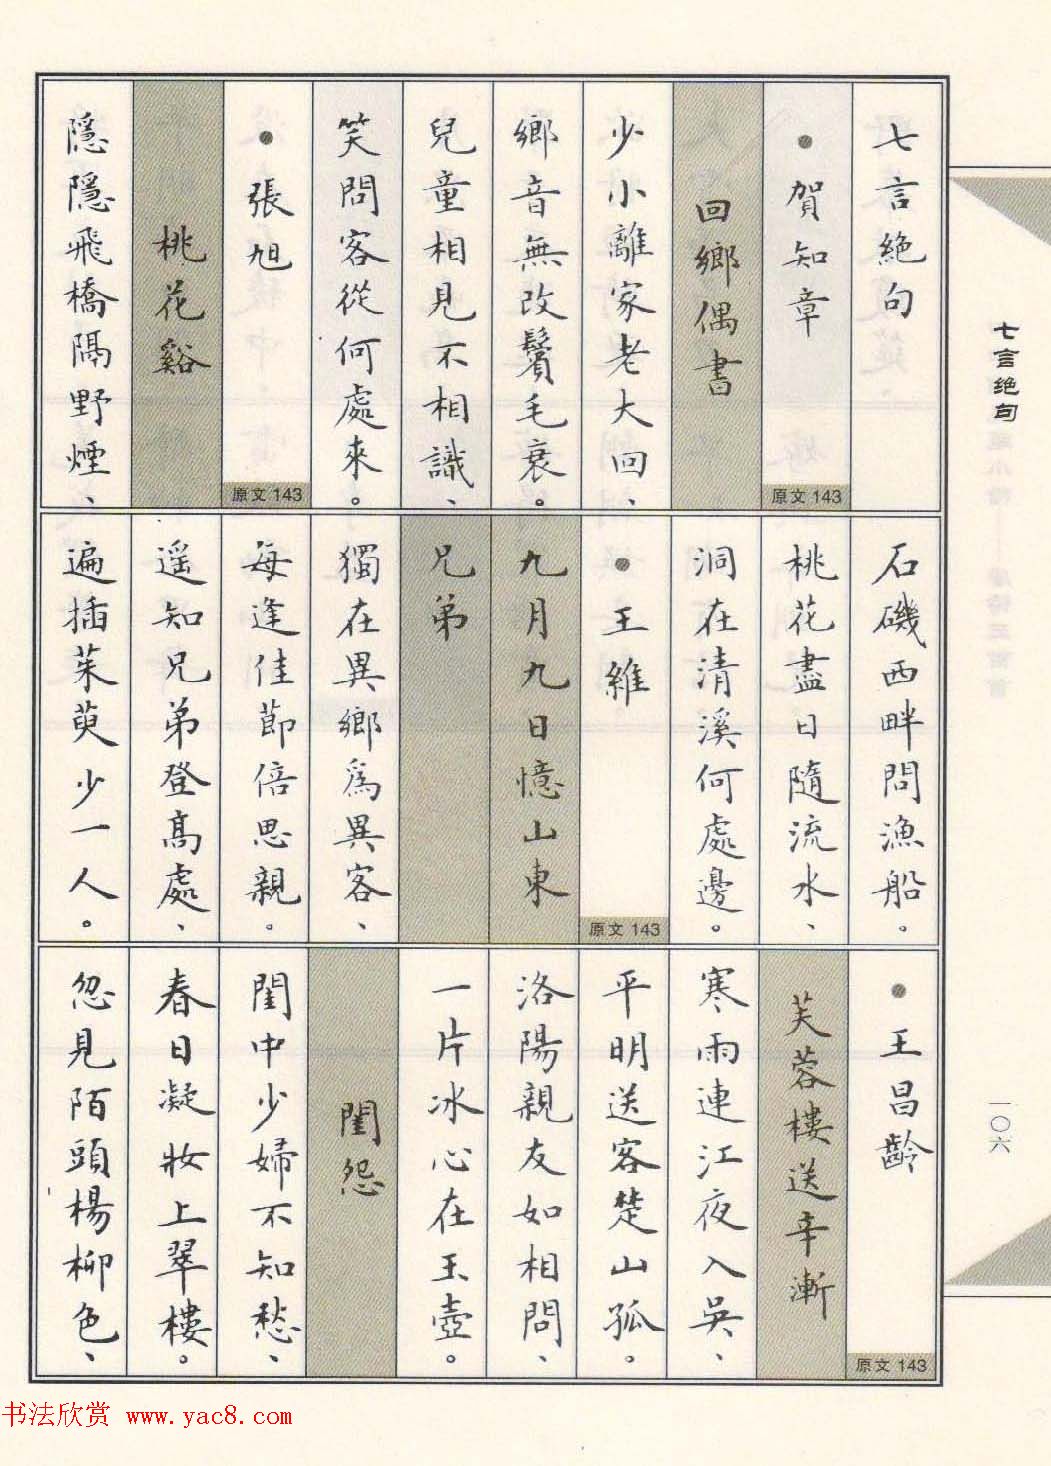 七言絕句
賀知章
原文143
回鄉偶書
少小離家老大回、
鄉音無改鬢毛衰。
兒童相見不相識、
笑問客從何處來。
張旭
原文143
桃花谿
隱隱飛橋隔野煙、
石磯西畔問漁船。
桃花盡日隨流水、
洞在清溪何處邊。
王維
原文143
九月九日憶山東
兄弟
獨在異鄉為異客、
每逢佳節倍思親。
遥知兄弟登高處、
遍插茱萸少一人。
王昌齡
原文143
芙蓉樓送辛漸
寒雨連江夜入吳、
平明送客楚山孤。
洛陽親友如相問、
一片冰心在玉壺。
閨怨
閨中少婦不知愁、
春日凝妝上翠樓。
忽見陌頭楊柳色、
七言绝句
一〇六
书法欣赏 www.yac8.com